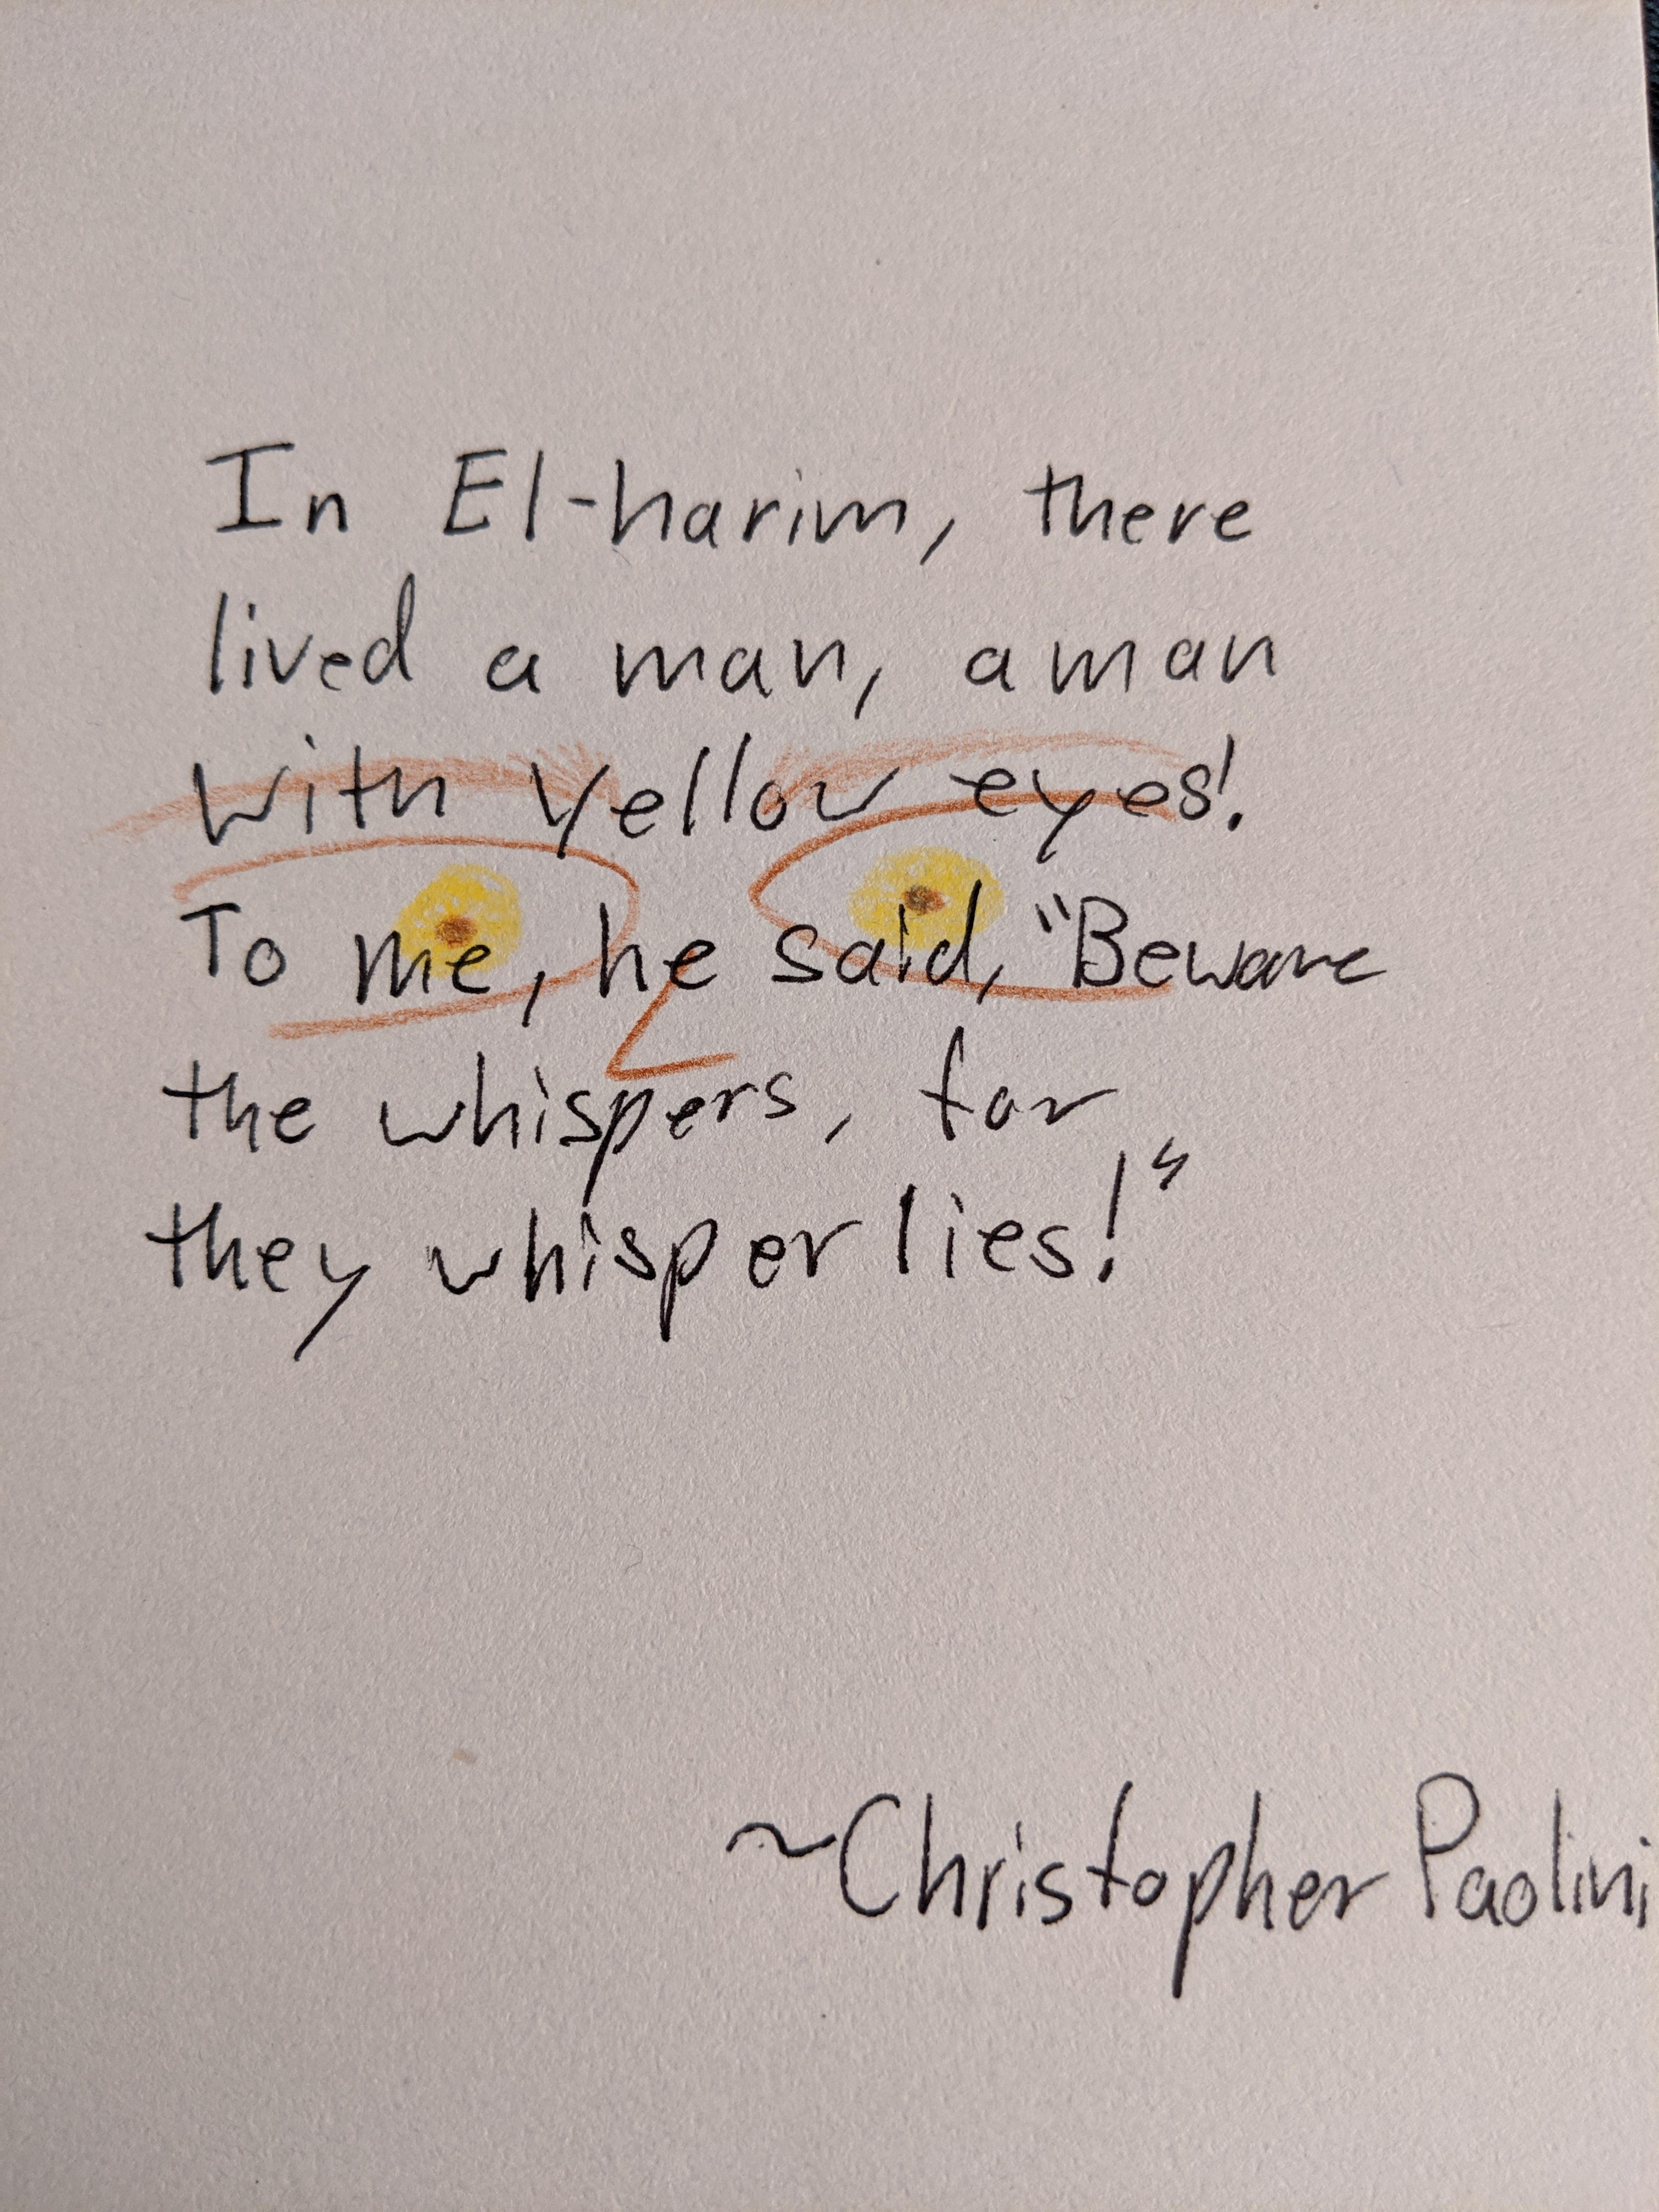 In El-harim, there
lived a man, a man
with yellow eyes!
To me, he said, "Beware
the whispers, for
they whisper lies!"
~Christopher Paolini